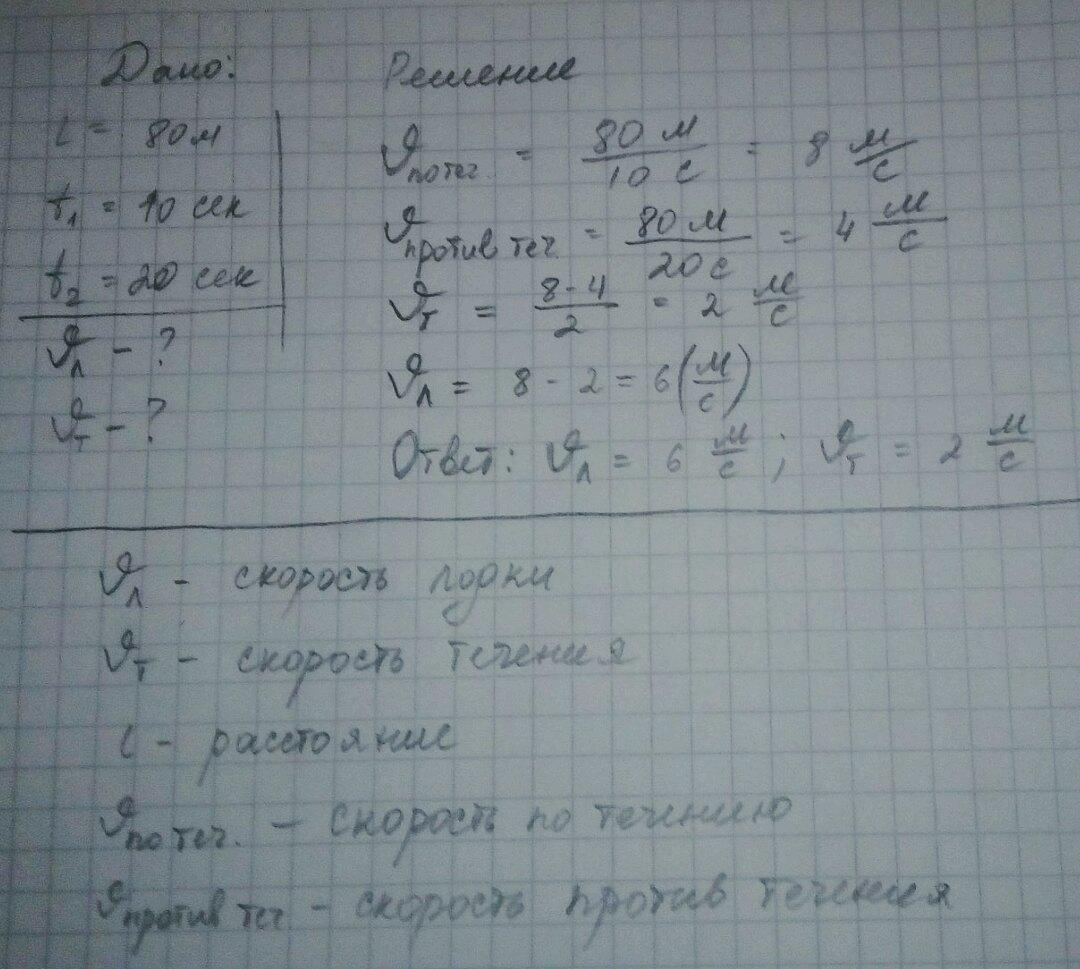 Дано:
l = 80м
t₁ = 10 сек
t₂ = 20 сек
𝜗л - ?
𝜗т - ?
Решение
𝜗по теч. = 80 м / 10 с = 8 м/с
𝜗против теч. = 80 м / 20 с = 4 м/с
𝜗т = 8-4 / 2 = 2 м/с
𝜗л = 8 - 2 = 6 (м/с)
Ответ: 𝜗л = 6 м/с ; 𝜗т = 2 м/с
𝜗л - скорость лодки
𝜗т - скорость течения
l - расстояние
𝜗по теч. - скорость по течению
𝜗против теч - скорость против течения